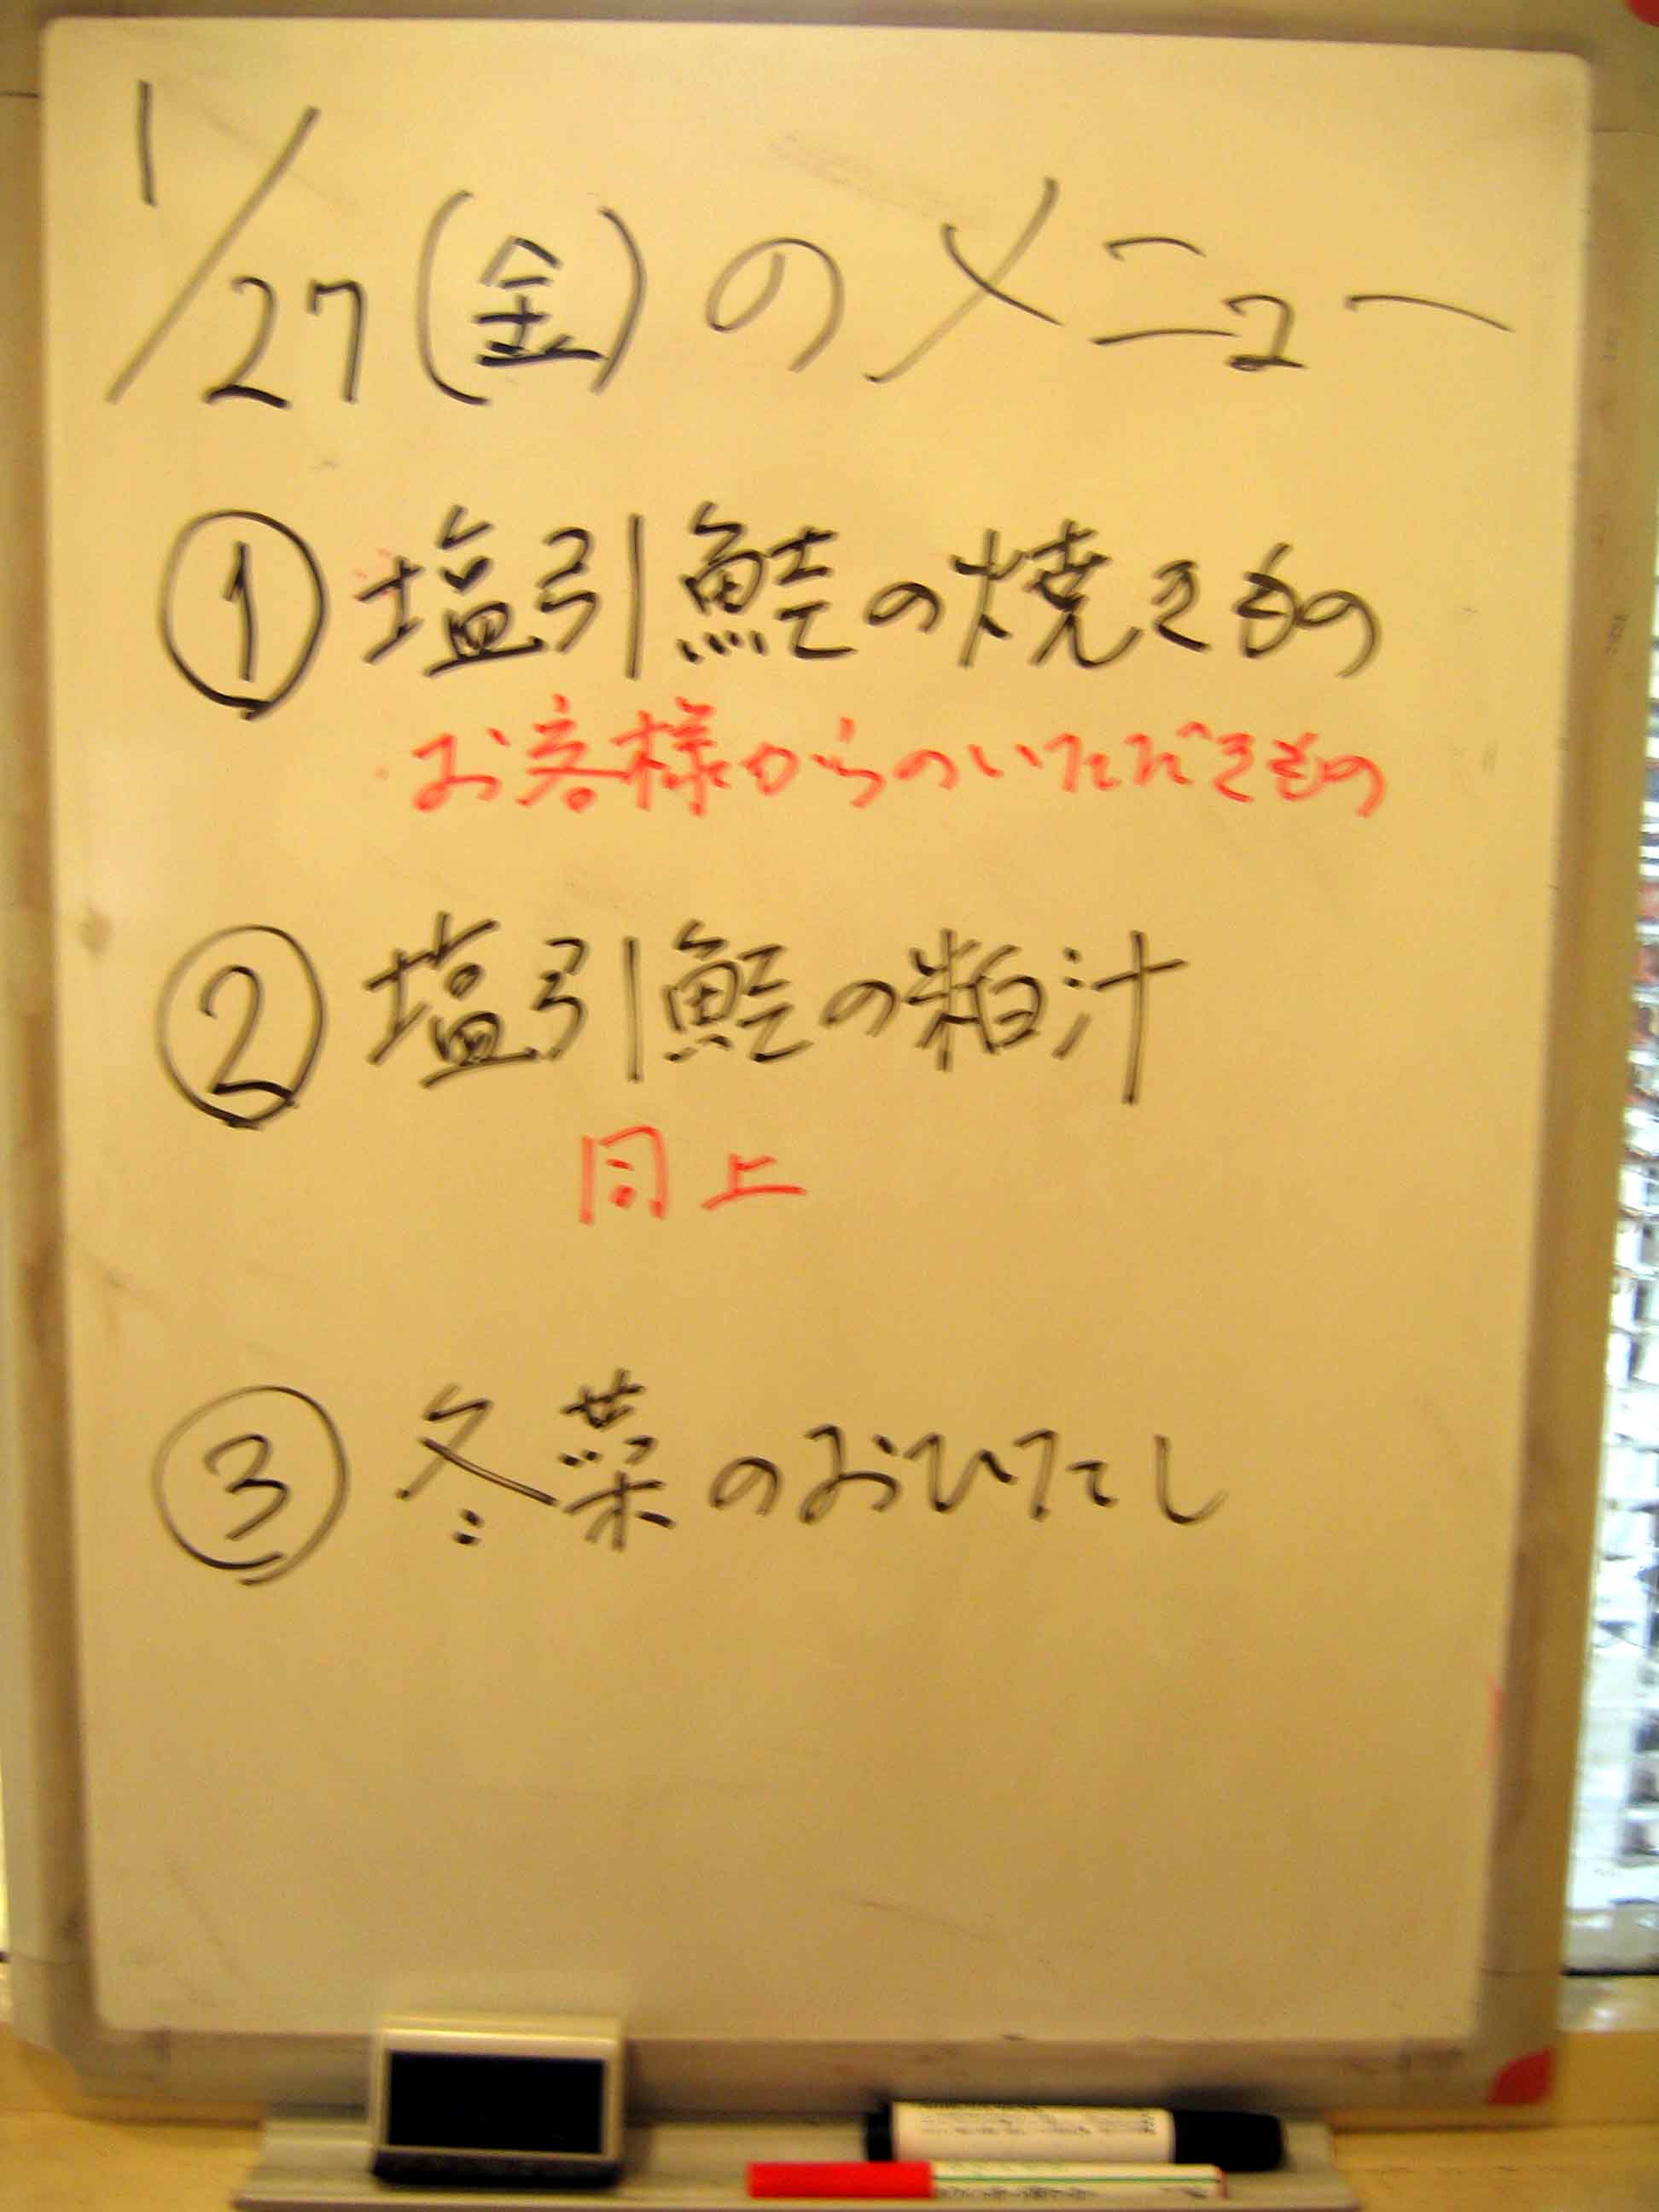 1/27(金)のメニュー
①塩引鮭の焼きもの
お客様からのいただきもの
②塩引鮭の粕汁
同上
③冬菜のおひたし